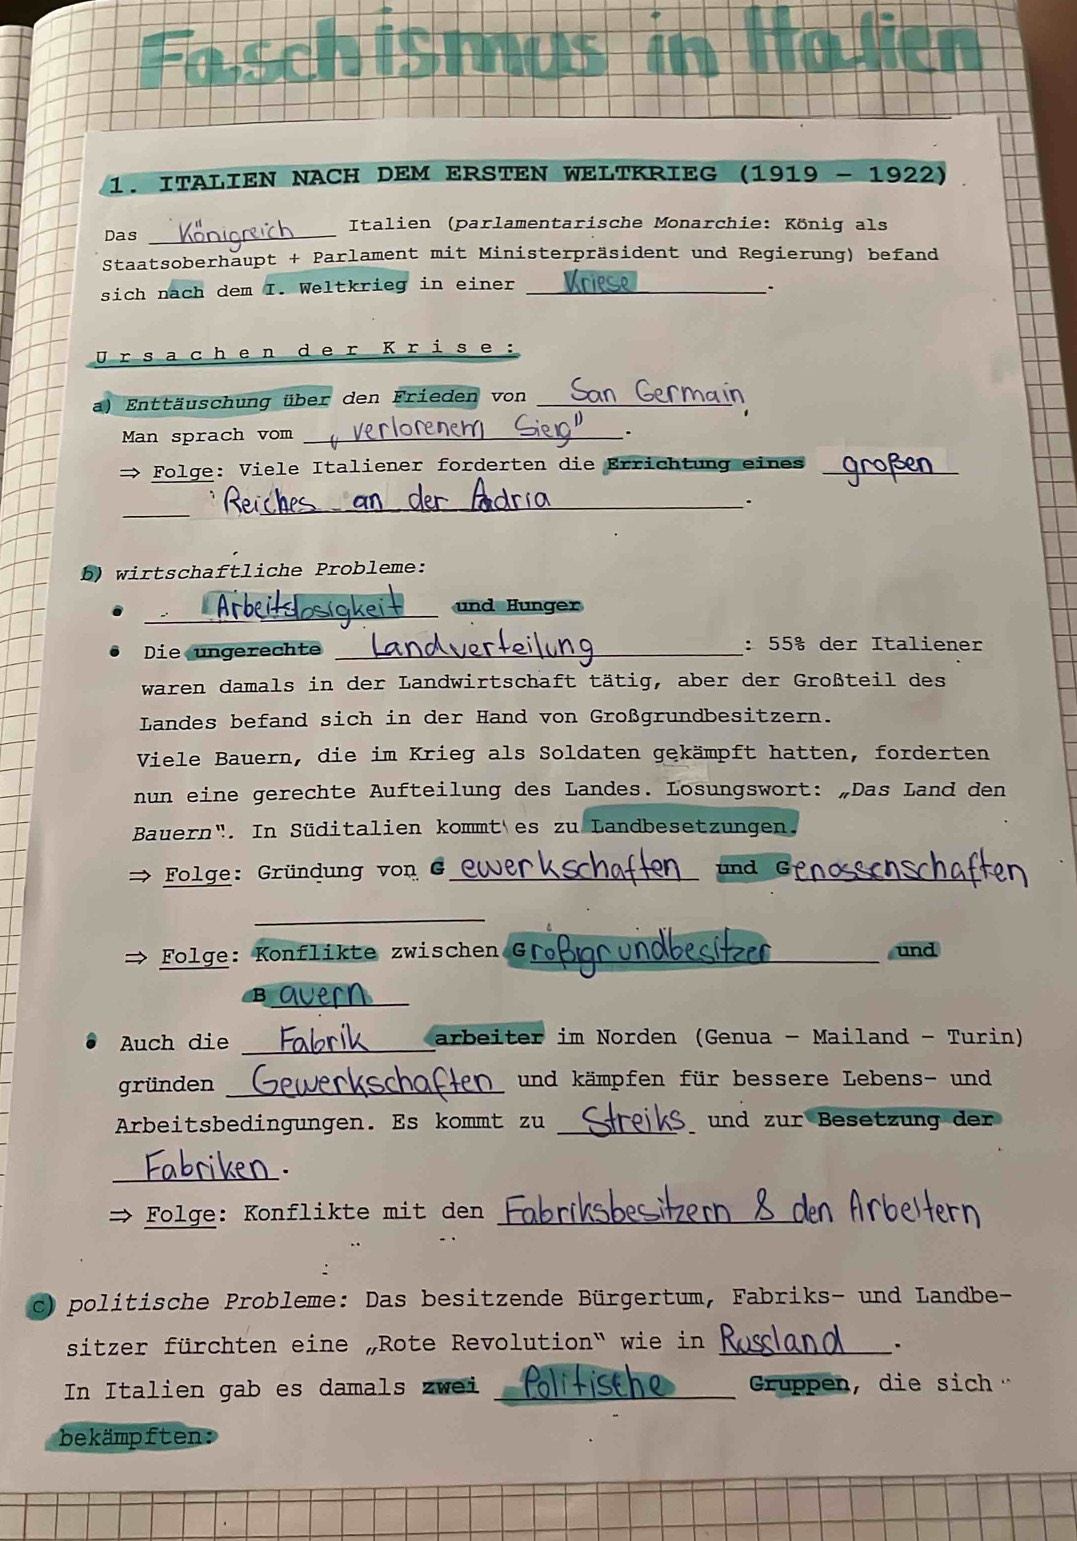 Faschismus in Italien
1. ITALIEN NACH DEM ERSTEN WELTKRIEG (1919 - 1922)
Das Königreich Italien (parlamentarische Monarchie: König als
Staatsoberhaupt + Parlament mit Ministerpräsident und Regierung) befand
sich nach dem I. Weltkrieg in einer Kriese.
Ursachen der Krise:
a) Enttäuschung über den Frieden von San Germain,
Man sprach vom „verlorenem Sieg".
⇒ Folge: Viele Italiener forderten die Errichtung eines großen
Reiches an der Adria.
b) wirtschaftliche Probleme:
• Arbeitslosigkeit und Hunger
• Die ungerechte Landverteilung: 55% der Italiener
waren damals in der Landwirtschaft tätig, aber der Großteil des
Landes befand sich in der Hand von Großgrundbesitzern.
Viele Bauern, die im Krieg als Soldaten gekämpft hatten, forderten
nun eine gerechte Aufteilung des Landes. Losungswort: „Das Land den
Bauern". In Süditalien kommt es zu Landbesetzungen.
⇒ Folge: Gründung von Gewerkschaften und Genossenschaften
⇒ Folge: Konflikte zwischen Großgrundbesitzer und
Bauern
• Auch die Fabrikarbeiter im Norden (Genua - Mailand - Turin)
gründen Gewerkschaften und kämpfen für bessere Lebens- und
Arbeitsbedingungen. Es kommt zu Streiks und zur Besetzung der
Fabriken.
⇒ Folge: Konflikte mit den Fabriksbesitzern & den Arbeitern
c) politische Probleme: Das besitzende Bürgertum, Fabriks- und Landbe-
sitzer fürchten eine „Rote Revolution" wie in Russland.
In Italien gab es damals zwei Politische Gruppen, die sich
bekämpften: